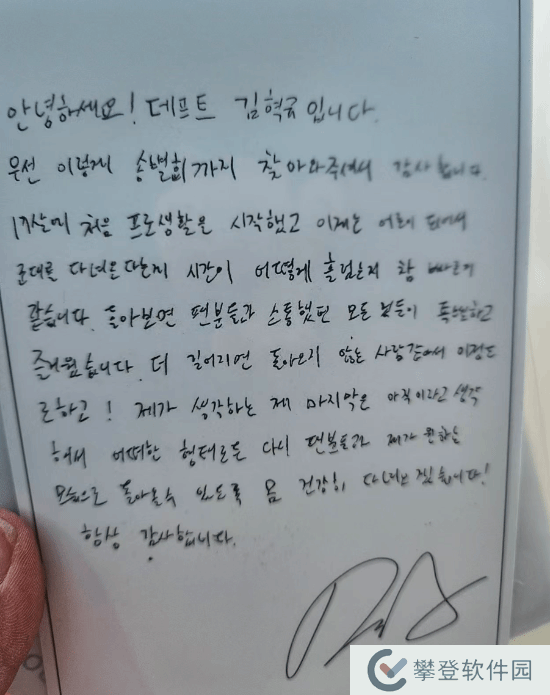 안녕하세요! 데프트 김혁규입니다.
우선 이렇게 송별회까지 찾아와주셔서 감사합니다.
17살에 처음 프로생활을 시작했고 이제는 어른이 되어서
군대를 다녀온다는지 시간이 어떻게 흘렀는지 참 빠르게
같습니다. 돌아보면 팬분들과 소통했던 모든 것들이 특별하고
즐거웠습니다. 더 길어지면 돌아오지 않는 사람같아서 이정도
로하고! 제가 생각하는 제 마지막은 아직이라고 생각
해서 어떠한 형태로든 다시 팬분들과 제가 원하는
모습으로 돌아올수 있도록 몸 건강히 다녀오겠습니다!
항상 감사합니다.
攀登软件园